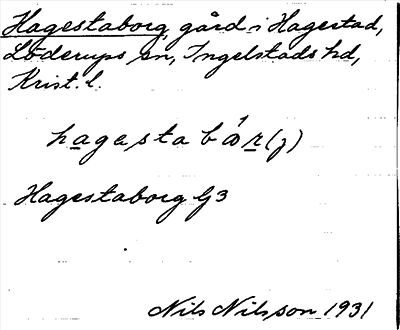 Hagestaborg, gård i Hagestad,
Löderups sn, Ingelstads hd,
Krist. l.
hagestabår(j)
Hagestaborg G3
Nils Nilsson 1931